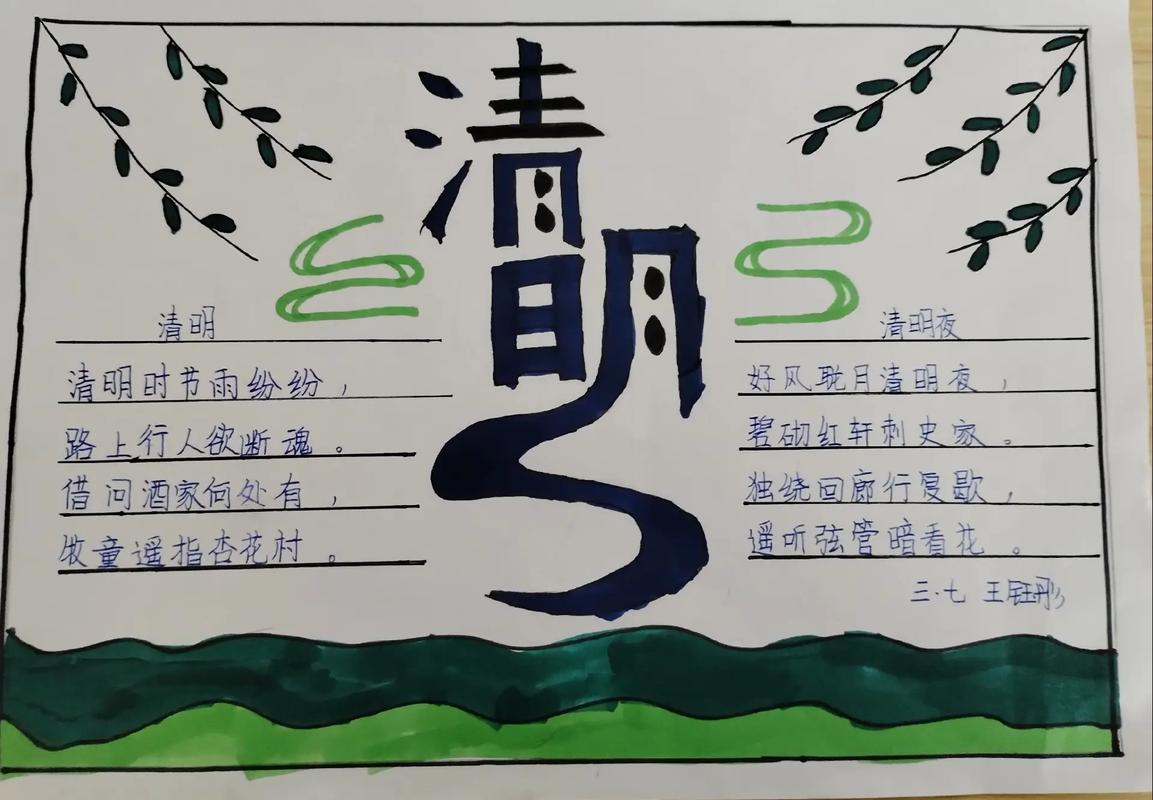 清明
清明
清明时节雨纷纷，
路上行人欲断魂。
借问酒家何处有，
牧童遥指杏花村。
清明夜
好风耽月清明夜，
碧砌红轩刺史家。
独绕回廊行复歇，
遥听弦管暗看花。
三·七 王钰彤